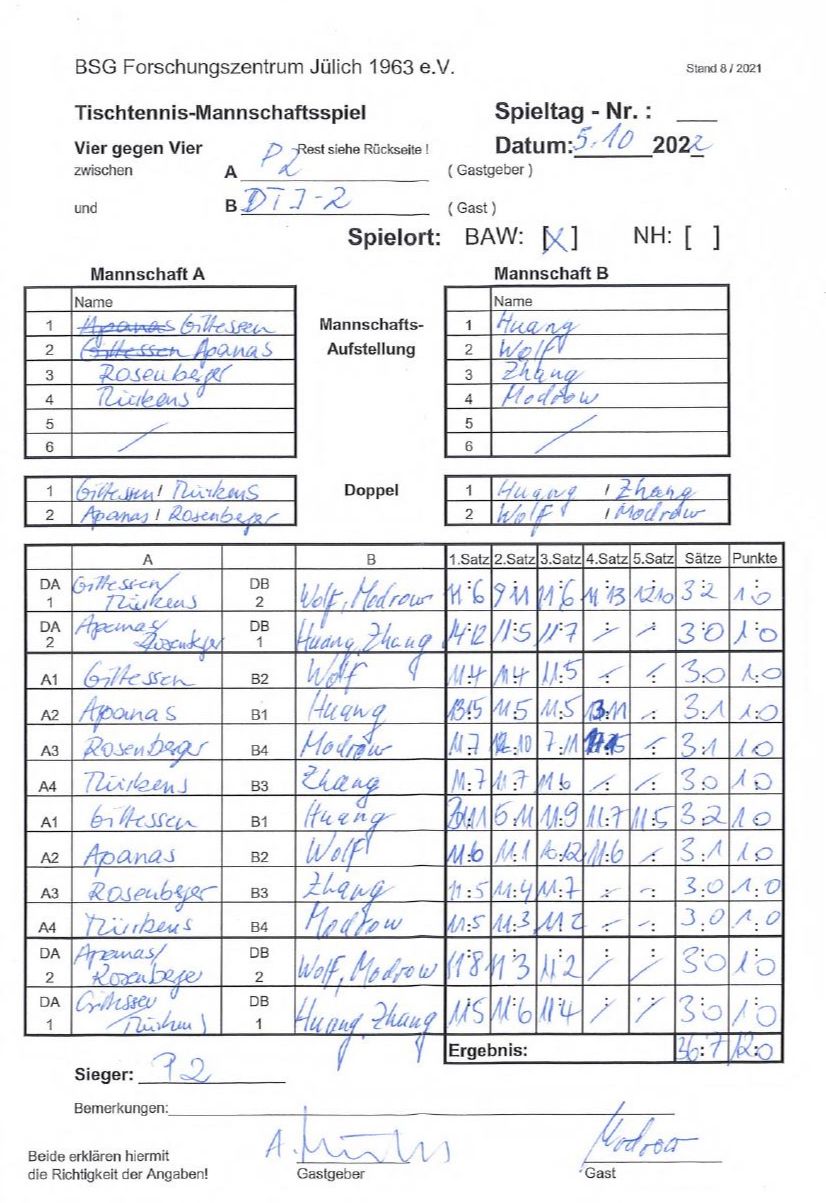 BSG Forschungszentrum Jülich 1963 e.V. Stand 8 / 2021
Tischtennis-Mannschaftsspiel Spieltag - Nr. :
Vier gegen Vier Rest siehe Rückseite ! Datum: 5.10 2022
zwischen A P2 ( Gastgeber )
und B DTJ-2 ( Gast )
Spielort: BAW: [X] NH: [ ]
Mannschaft A Mannschaft B
Name Mannschafts- Name
1 Apanas Gittessen 1 Huang
2 Gittessen Apanas Aufstellung 2 Wolf
3 Rosenberger 3 Zhang
4 Türkens 4 Modrow
5 5
6 / 6 /
1 Gittessen / Türkens Doppel 1 Huang / Zhang
2 Apanas / Rosenberger 2 Wolf / Modrow
A B 1.Satz 2.Satz 3.Satz 4.Satz 5.Satz Sätze Punkte
DA 1 Gittessen / Türkens DB 2 Wolf, Modrow 11:6 9:11 11:6 11:13 12:10 3:2 1:0
DA 2 Apanas / Rosenberger DB 1 Huang, Zhang 14:12 11:5 11:7 -:- -:- 3:0 1:0
A1 Gittessen B2 Wolf 11:4 11:4 11:5 -:- -:- 3:0 1:0
A2 Apanas B1 Huang 13:15 11:5 11:5 13:11 -:- 3:1 1:0
A3 Rosenberger B4 Modrow 11:7 12:10 7:11 -:- 3:1 1:0
A4 Türkens B3 Zhang 11:7 11:7 11:6 -:- -:- 3:0 1:0
A1 Gittessen B1 Huang :11 5:11 11:9 11:7 11:5 3:2 1:0
A2 Apanas B2 Wolf 11:6 11:1 10:12 11:6 -:- 3:1 1:0
A3 Rosenberger B3 Zhang 11:5 11:4 11:7 -:- -:- 3:0 1:0
A4 Türkens B4 Modrow 11:5 11:3 11:2 -:- -:- 3:0 1:0
DA 2 Apanas / Rosenberger DB 2 Wolf, Modrow 11:8 11:3 11:2 -:- -:- 3:0 1:0
DA 1 Gittessen / Türkens DB 1 Huang, Zhang 11:5 11:6 11:4 -:- -:- 3:0 1:0
Ergebnis: 36:7 12:0
Sieger: P2
Bemerkungen:
Beide erklären hiermit A. Modrow
die Richtigkeit der Angaben! Gastgeber Gast